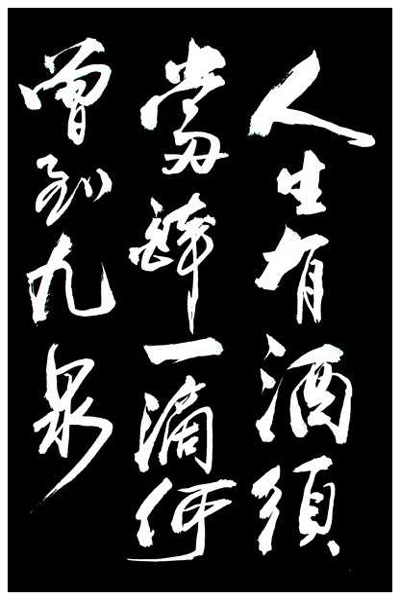 人生有酒須
當醉一滴何
曾到九泉